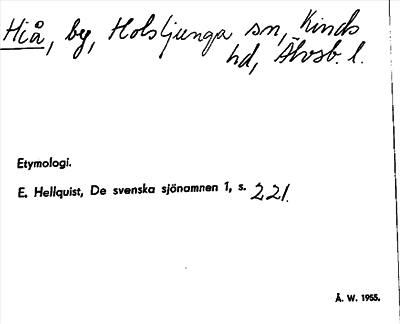 Hiå, by, Holsljunga sn, Kinds
hd, Älvsb. l.
Etymologi.
E. Hellquist, De svenska sjönamnen 1, s. 221.
Å. W. 1955.